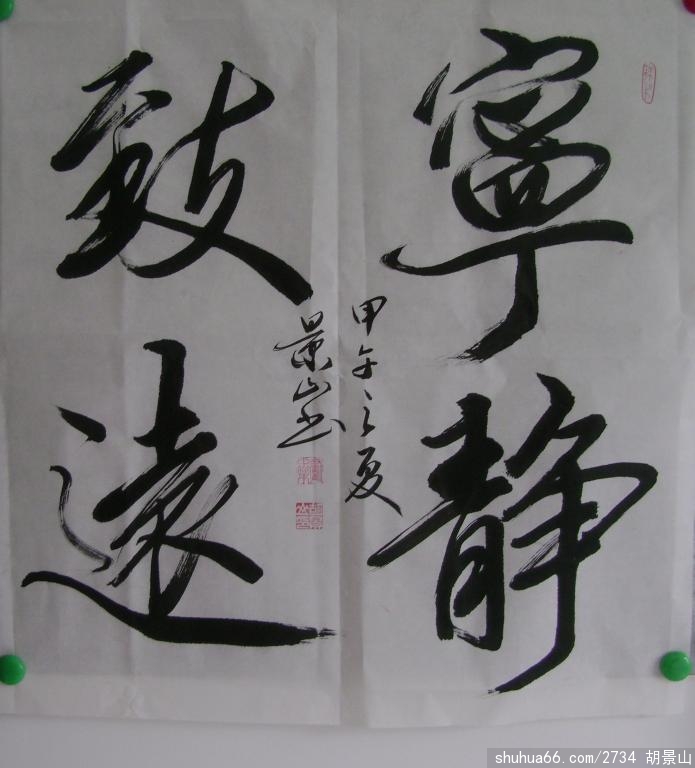 寧靜
致遠
甲午之夏
景山书
shuhua66.com/2734 胡景山